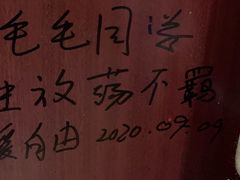 毛毛同学
生放荡不羁
爱自由 2020.09.09